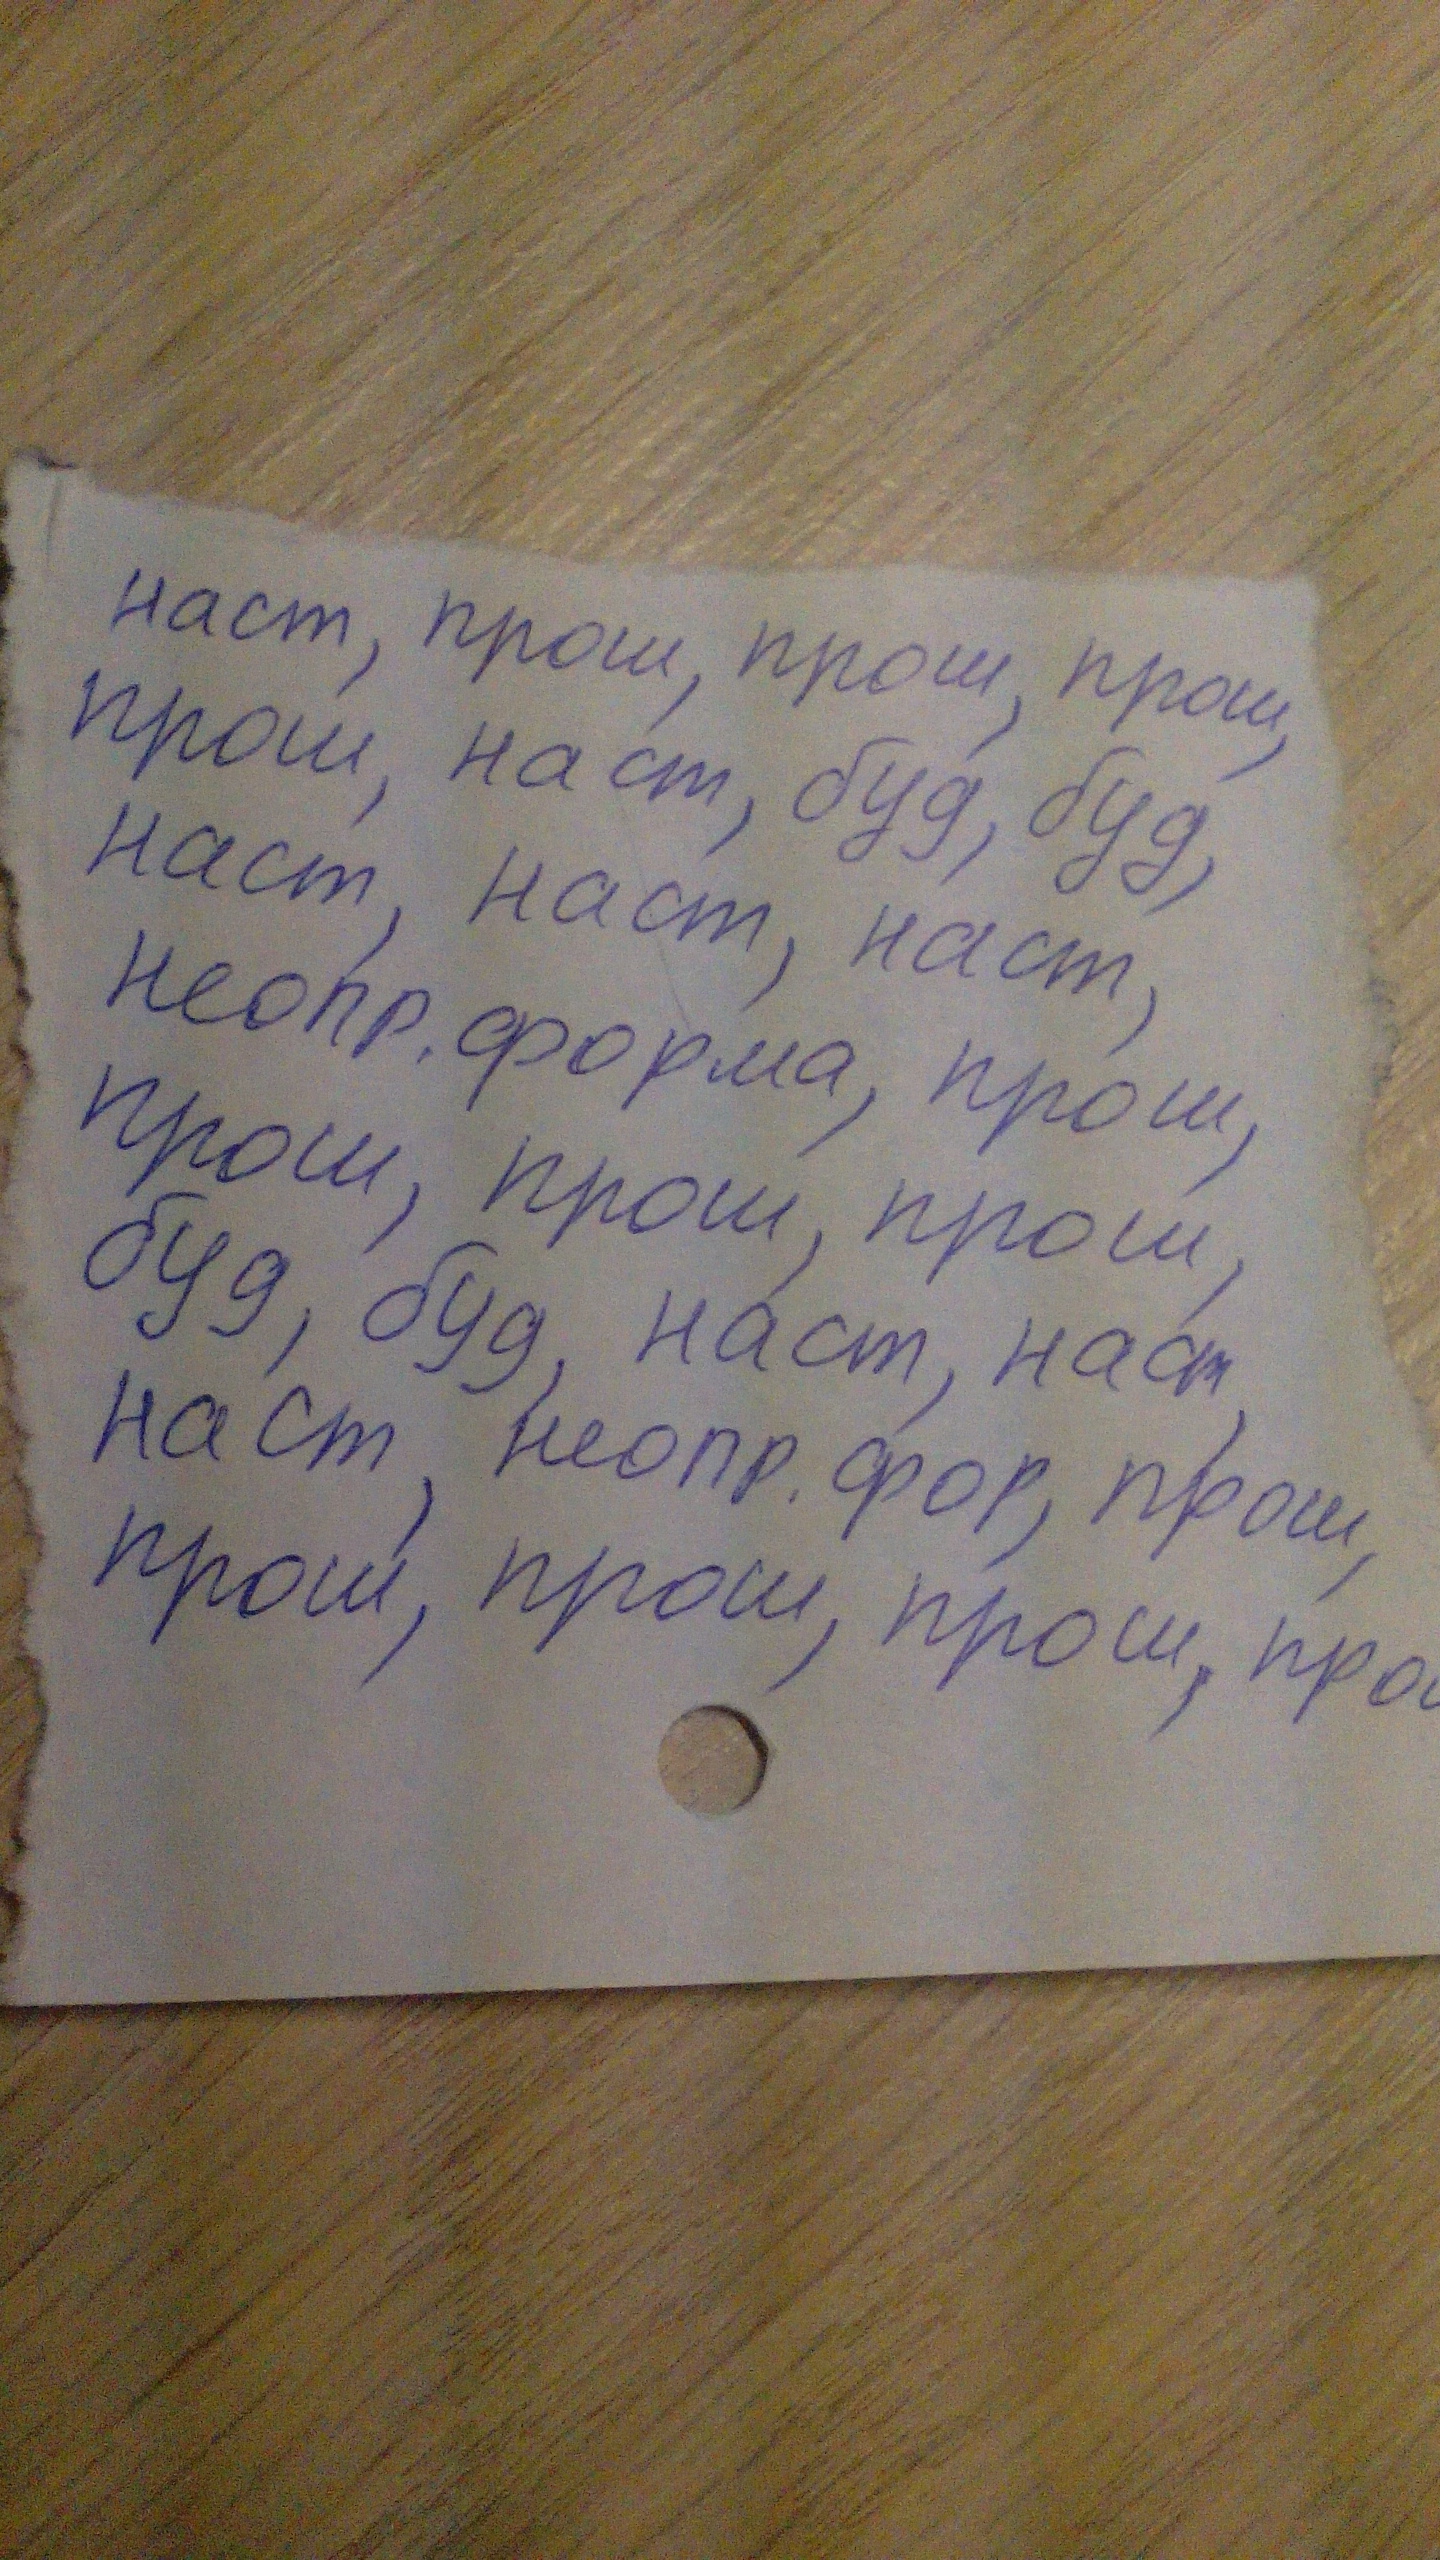 наст, прош, прош, прош,
прош, наст, буд, буд,
наст, наст, наст,
неопр. форма, прош,
прош, прош, прош,
буд, буд, наст, наст,
наст, неопр. фор, прош,
прош, прош, прош,